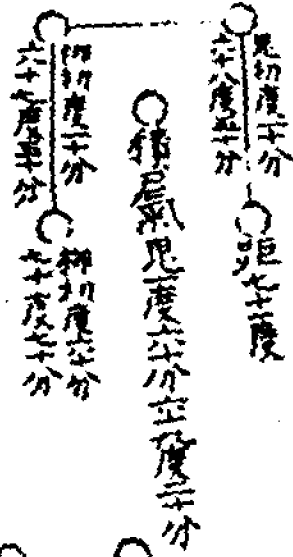 鬼初度二十分
六十八度五十分
距七十二度
積尸氣鬼一度六十分六十一度二十分
柳初度二十分
六十七度五十分
柳初度六十分
七十度七十分